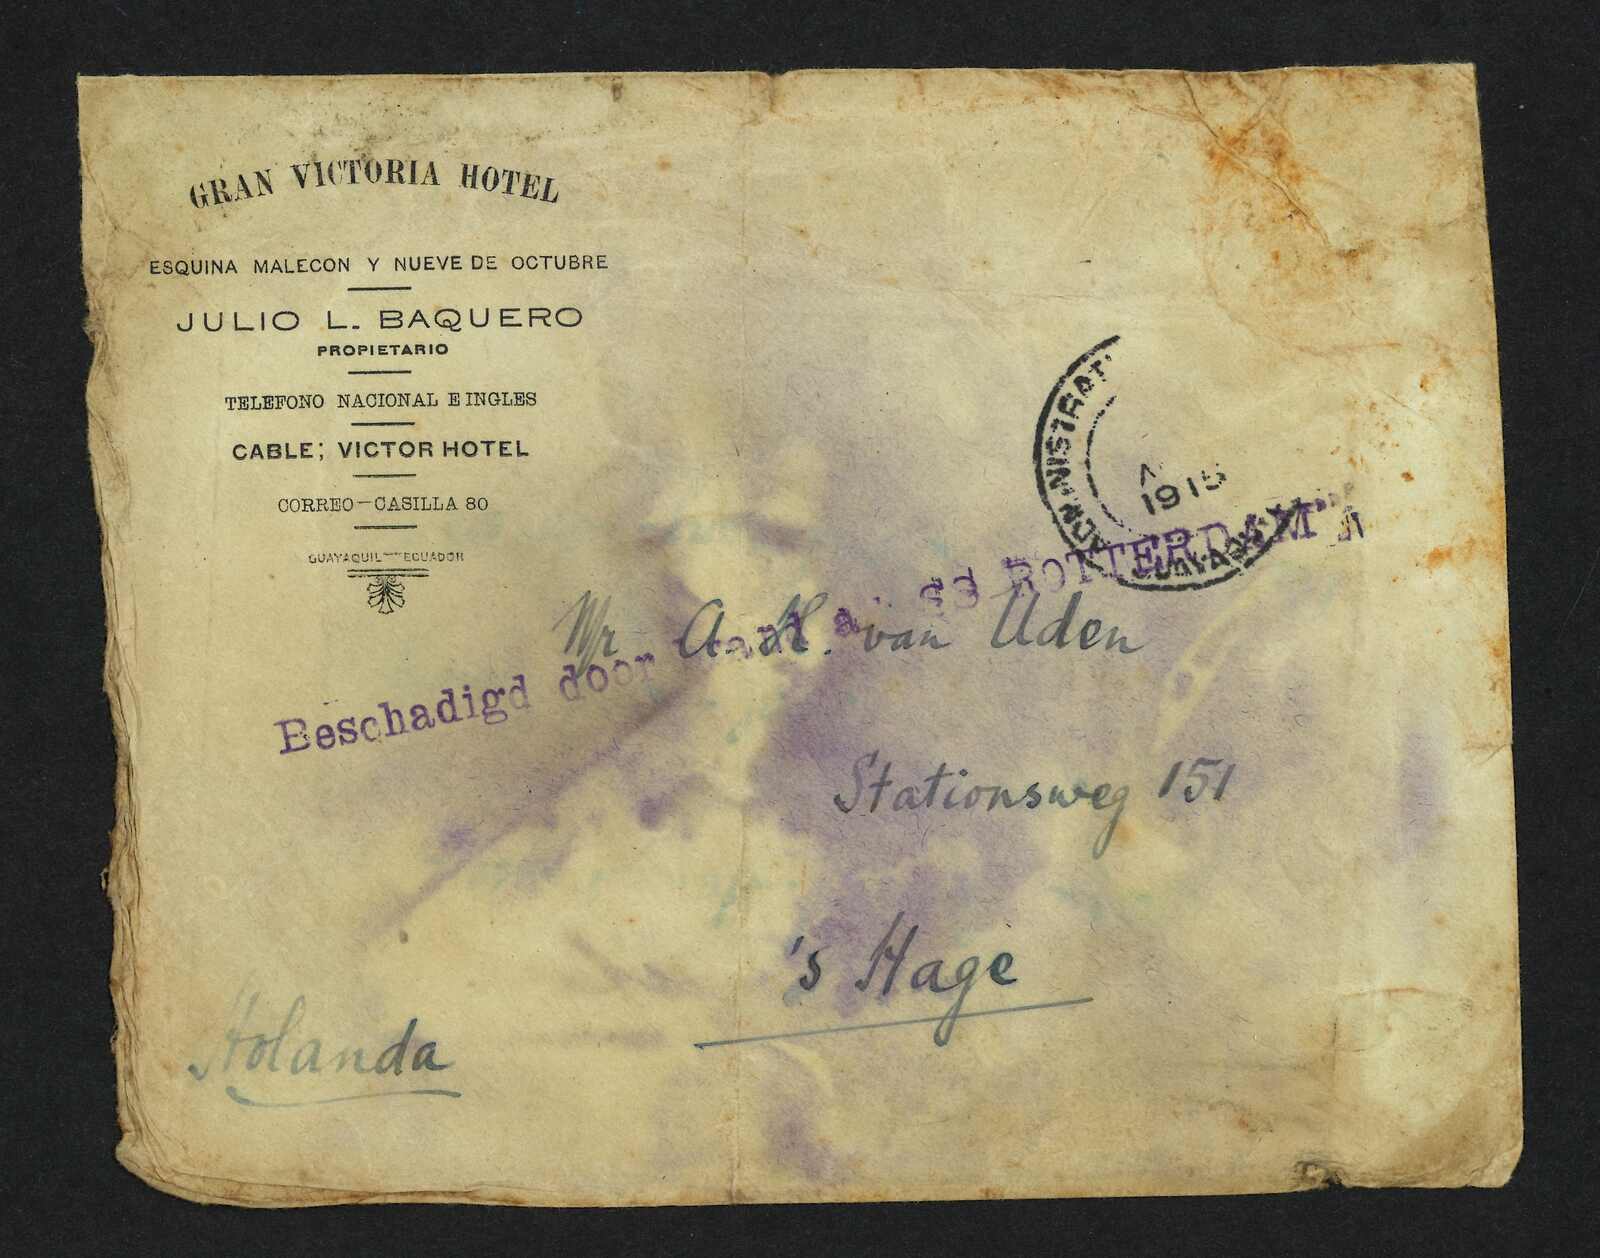 GRAN VICTORIA HOTEL
ESQUINA MALECON Y NUEVE DE OCTUBRE
JULIO L. BAQUERO
PROPIETARIO
TELEFONO NACIONAL E INGLES
CABLE; VICTOR HOTEL
CORREO—CASILLA 80
GUAYAQUIL—ECUADOR
ADMINISTRAT
1915
GUAYAQUIL
Beschadigd door brand a/b SS ROTTERDAM
Mr A. H. van Uden
Stationsweg 151
's Hage
Holanda